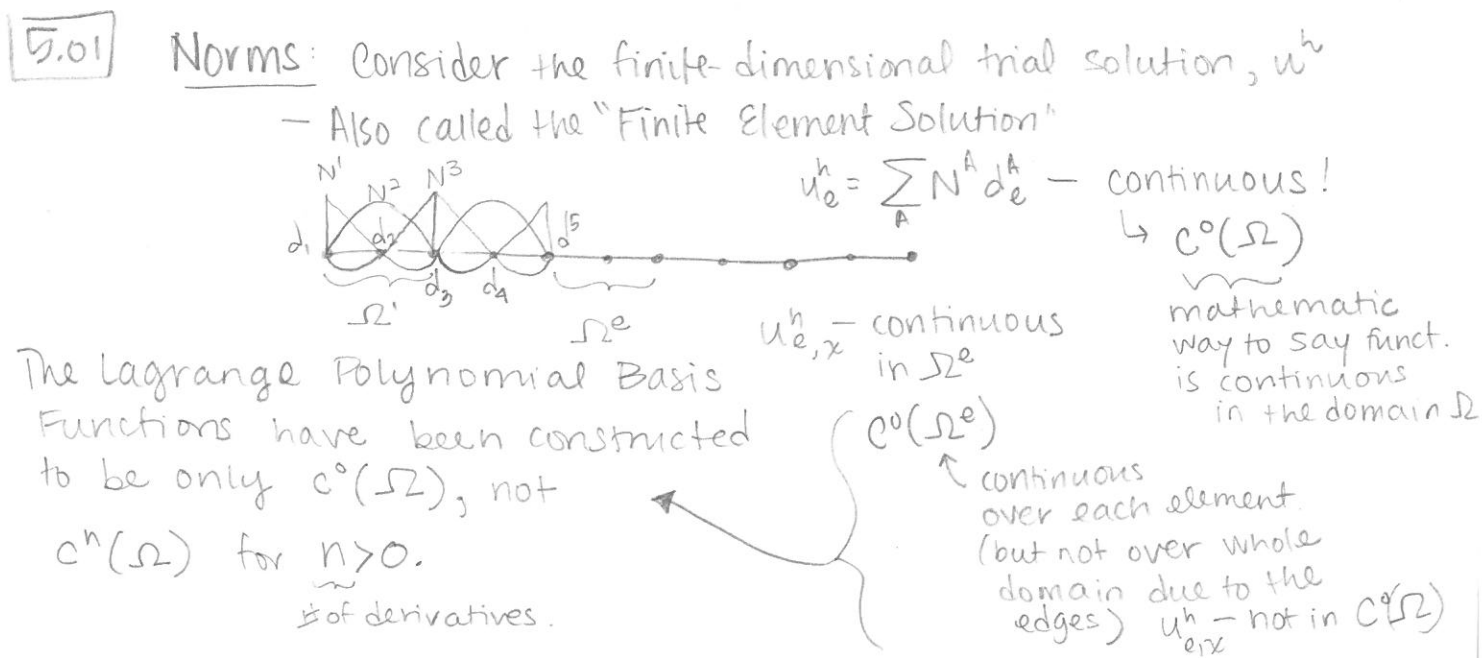 5.01 Norms: Consider the finite-dimensional trial solution, uʰ
— Also called the "Finite Element Solution"
N¹ N² N³
d₁ d₂ d₃ d₄ d⁵
Ω¹ Ωᵉ
uʰₑ = ∑_A Nᴬ dᴬₑ — continuous!
↳ C⁰(Ω)
mathematic
way to say funct.
is continuous
in the domain Ω
uʰₑ,ₓ — continuous
in Ωᵉ
C⁰(Ωᵉ)
↑ continuous
over each element.
(but not over whole
domain due to the
edges) uʰₑ,ₓ — not in C⁰(Ω)
The Lagrange Polynomial Basis
Functions have been constructed
to be only C⁰(Ω), not
Cⁿ(Ω) for n>0.
# of derivatives.